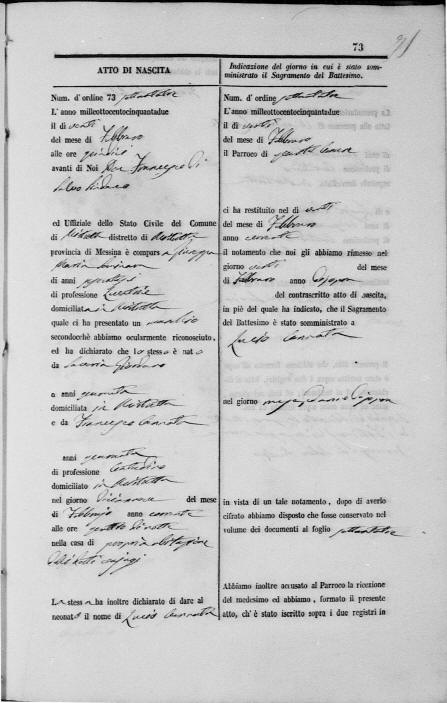 73
ATTO DI NASCITA
Num. d'ordine 73 settantatre
L'anno milleottocentocinquantadue
il dì venti
del mese di Febbraro
alle ore
avanti di Noi Don Francesco Di
Salvo Sindaco
ed Uffiziale dello Stato Civile del Comune
di Mistretta distretto di Mistretta
provincia di Messina è compars a
Maria
di anni
di professione Levatrice
domiciliata in Mistretta
quale ci ha presentato un maschio
secondochè abbiamo ocularmente riconosciuto,
ed ha dichiarato che lo stesso è nato
da Giordano
a anni quaranta
domiciliata in Mistretta
e da Francesco Cannata
anni quaranta
di professione
domiciliato in Mistretta
nel giorno diciannove del mese
di Febbraro anno corrente
alle ore quattro di notte
nella casa di propria abitazione
de' detti conjugi
La stessa ha inoltre dichiarato di dare al
neonato il nome di Lucio Cannata
Indicazione del giorno in cui è stato som-
ministrato il Sagramento del Battesimo.
Num. d'ordine settantatre
L'anno milleottocentocinquantadue
il dì venti
del mese di Febbraro
il Parroco di questo Comune
ci ha restituito nel dì venti
del mese di Febbraro
anno corrente
il notamento che noi gli abbiamo rimesso nel
giorno venti del mese
di Febbraro anno
del contrascritto atto di nascita,
in piè del quale ha indicato, che il Sagramento
del Battesimo è stato somministrato a
Lucio Cannata
nel giorno
in vista di un tale notamento, dopo di averlo
cifrato abbiamo disposto che fosse conservato nel
volume dei documenti al foglio settantatre
Abbiamo inoltre accusato al Parroco la ricezione
del medesimo ed abbiamo, formato il presente
atto, ch'è stato iscritto sopra i due registri in